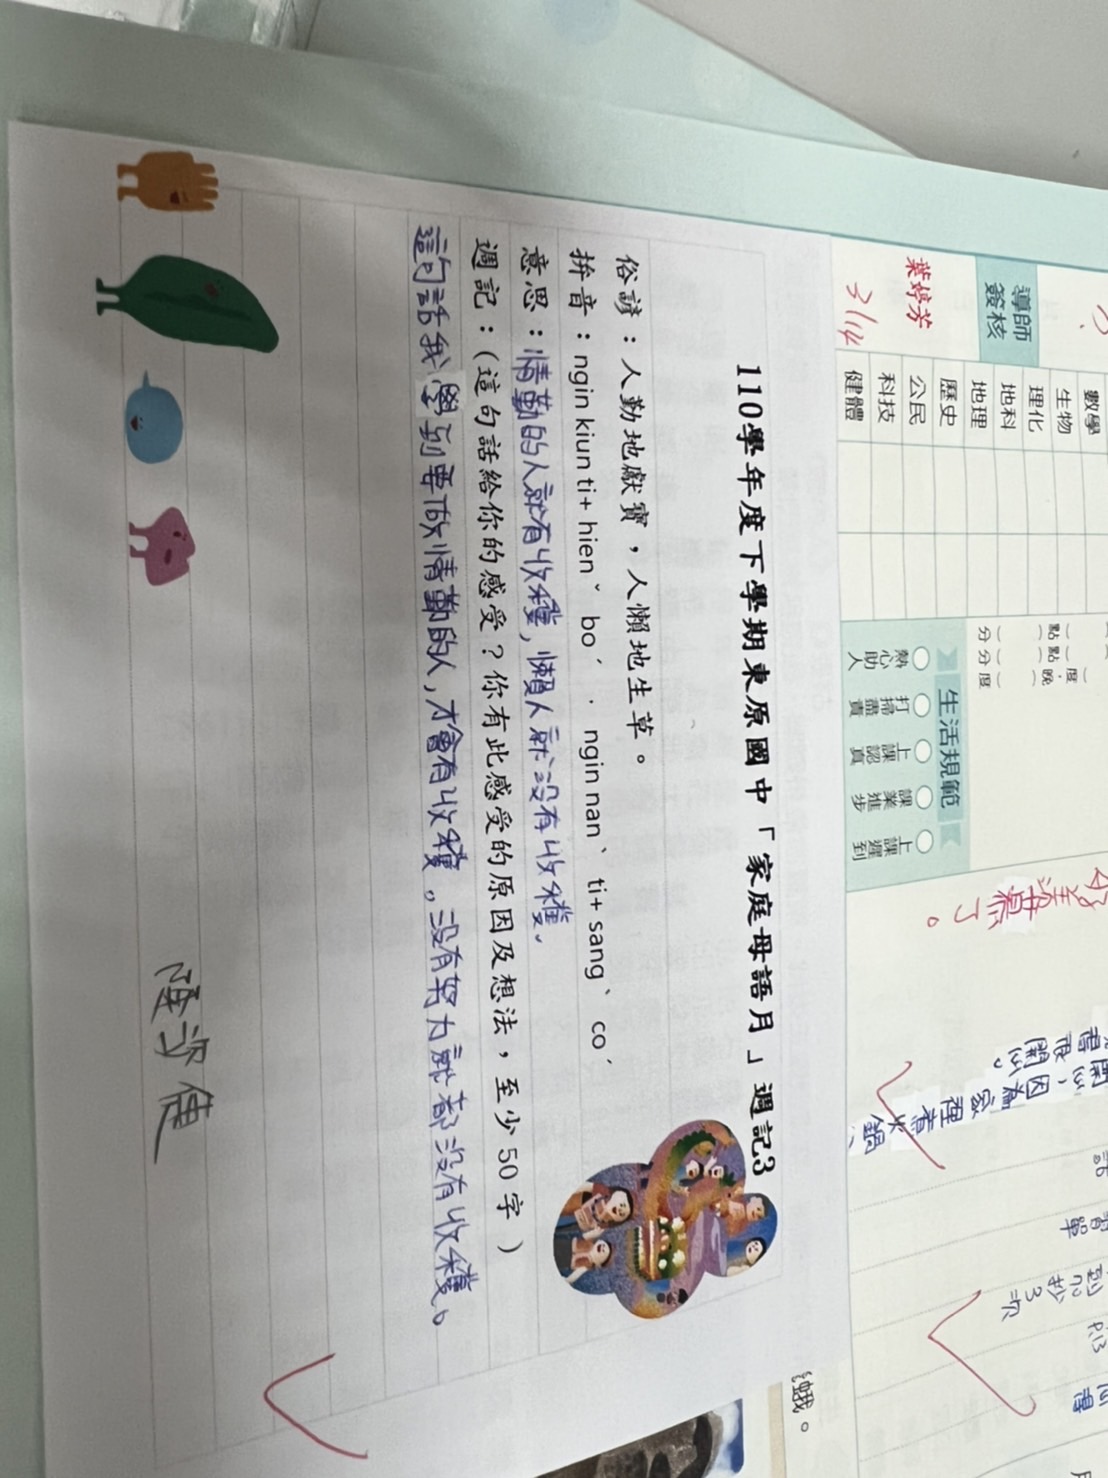 110學年度下學期東原國中「家庭母語月」週記3
俗諺：人勤地獻寶，人懶地生草。
拚音：ngin kiun ti+ hienˇ boˊ · ngin nanˋ ti+ sangˋ coˊ
意思：情勤的人就有收穫，懶人就沒有收穫。
週記：(這句話給你的感受？你有此感受的原因及想法，至少50字)
這句話我學到要做情勤的人，才會有收穫。沒有努力就都沒有收穫。
導師
簽核
葉婷芳
3/14
數學
生物
理化
地科
地理
歷史
公民
科技
健體
生活規範
熱心助人
打掃盡責
上課認真
課業進步
上課遲到
開心，因為家裡煮火鍋、
很開心。